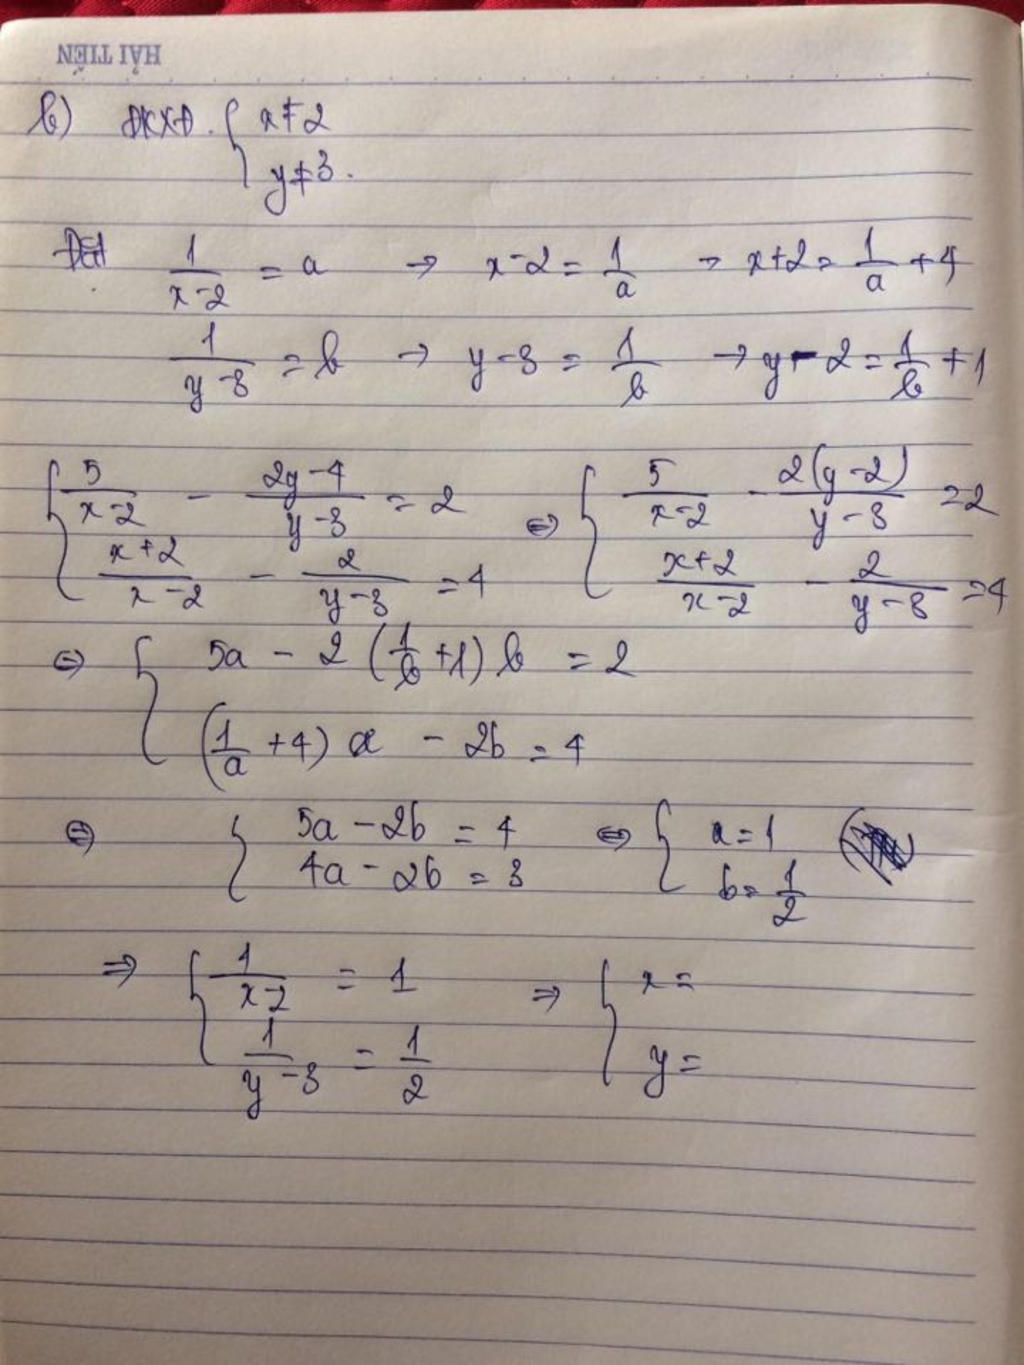 HẢI TIẾN
b) ĐKXĐ. { x≠2
y≠3.
Đặt 1/(x-2) = a → x-2 = 1/a → x+2 = 1/a + 4
1/(y-3) = b → y-3 = 1/b → y-2 = 1/b + 1
{ 5/(x-2) - (2y-4)/(y-3) = 2 ⇔ { 5/(x-2) - 2(y-2)/(y-3) = 2
(x+2)/(x-2) - 2/(y-3) = 4 (x+2)/(x-2) - 2/(y-3) = 4
⇔ { 5a - 2 (1/b + 1) b = 2
(1/a + 4) a - 2b = 4
⇔ { 5a - 2b = 4 ⇔ { a = 1
4a - 2b = 3 b = 1/2
⇒ { 1/(x-2) = 1 ⇒ { x =
1/(y-3) = 1/2 y =